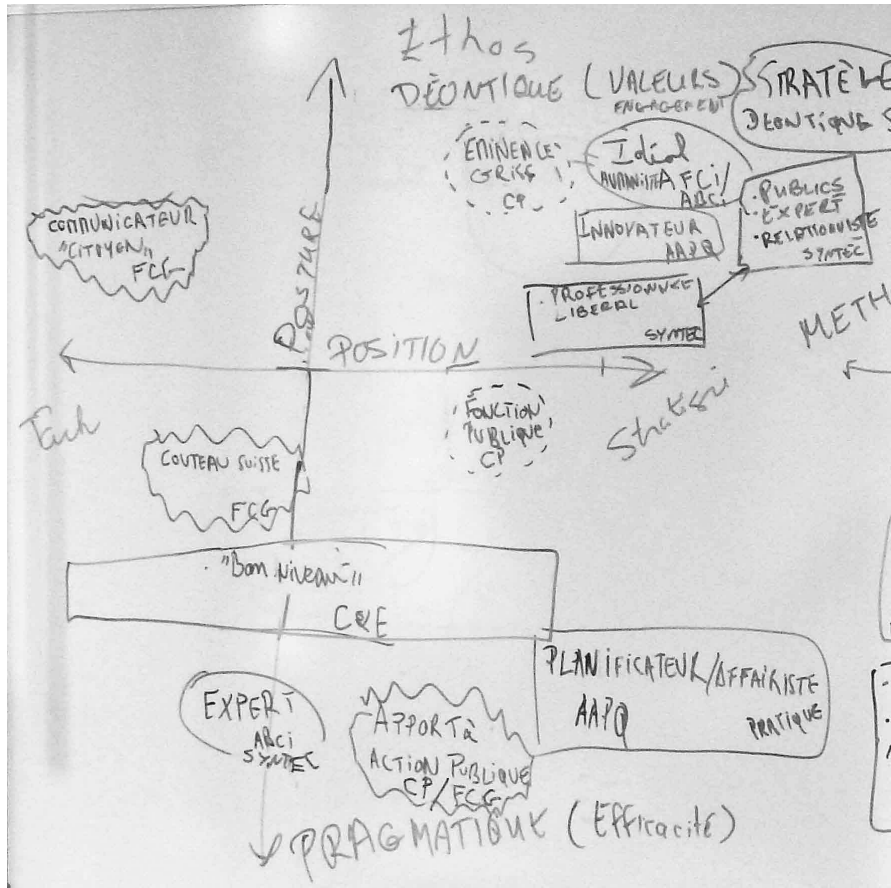 Ethos
DÉONTIQUE (VALEURS)
ENGAGEMENT
STRATÈGE
DEONTIQUE
EMINENCE
GRISE
CP
Idéal
HUMANISTE AFCI/
ABCi
. PUBLICS
. EXPERT
. RELATIONNISTE
SYNTEC
COMMUNICATEUR
"CITOYEN"
FCG
INNOVATEUR
AAPQ
. PROFESSIONNEL
LIBERAL
SYNTEC
POSTURE
POSITION
METH
Tech
Stratégie
FONCTION
PUBLIQUE
CP
COUTEAU SUISSE
FCG
. "Bon niveau"
C&E
PLANIFICATEUR/AFFAIRISTE
AAPQ
PRATIQUE
EXPERT
ABCi
SYNTEC
APPORT à
ACTION PUBLIQUE
CP/FCG
PRAGMATIQUE (Efficacité)